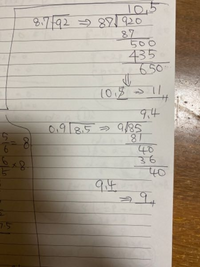 10.5
8.7)92 ⇒ 87)920
87
500
435
650
⇓
10.5 ⇒ 11
9.4
0.9)8.5 ⇒ 9)85
81
40
36
40
9.4
⇒ 9